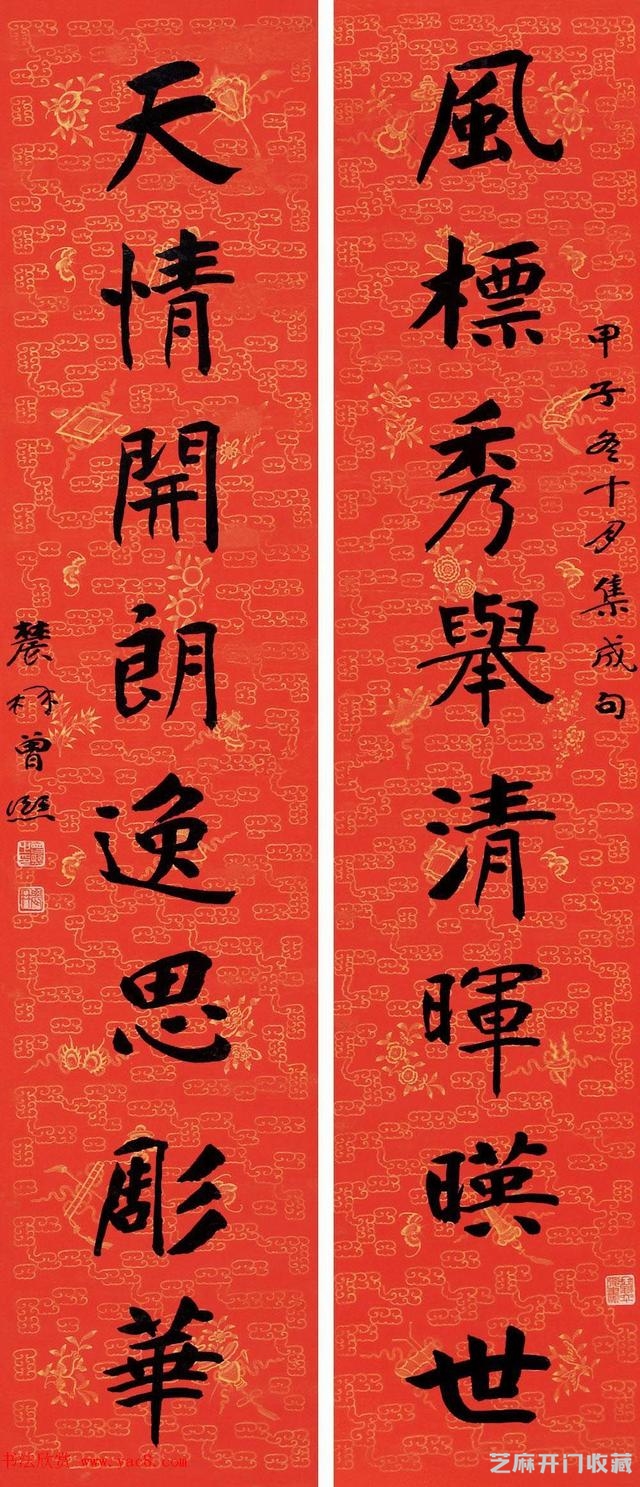 風標秀舉清暉暎世
甲子冬十月集成句
天情開朗逸思彫華
農髯曾熙
书法欣赏 www.yac8.com
芝麻开门收藏